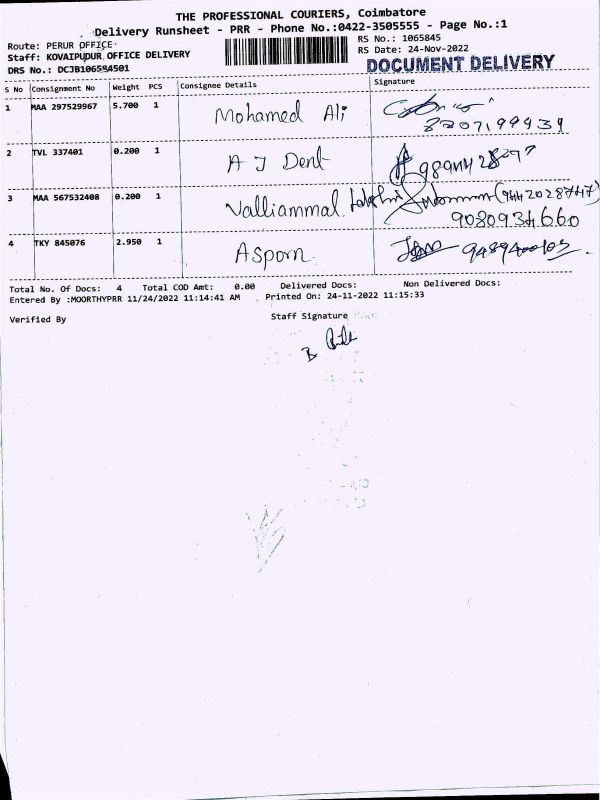 THE PROFESSIONAL COURIERS, Coimbatore
Delivery Runsheet - PRR - Phone No.:0422-3505555 - Page No.:1
Route: PERUR OFFICE
RS No.: 1065845
Staff: KOVAIPUDUR OFFICE DELIVERY
RS Date: 24-Nov-2022
DRS No.: DCJB106584501
DOCUMENT DELIVERY
S No Consignment No Weight PCS Consignee Details Signature
1 MAA 297529967 5.700 1 Mohamed Ali
8207199939
2 TVL 337401 0.200 1 A J Dent
3 MAA 567532408 0.200 1 Valliammal
9080934660
4 TKY 845076 2.950 1 Asporn
Total No. Of Docs: 4 Total COD Amt: 0.00 Delivered Docs: Non Delivered Docs:
Entered By :MOORTHYPRR 11/24/2022 11:14:41 AM Printed On: 24-11-2022 11:15:33
Verified By Staff Signature